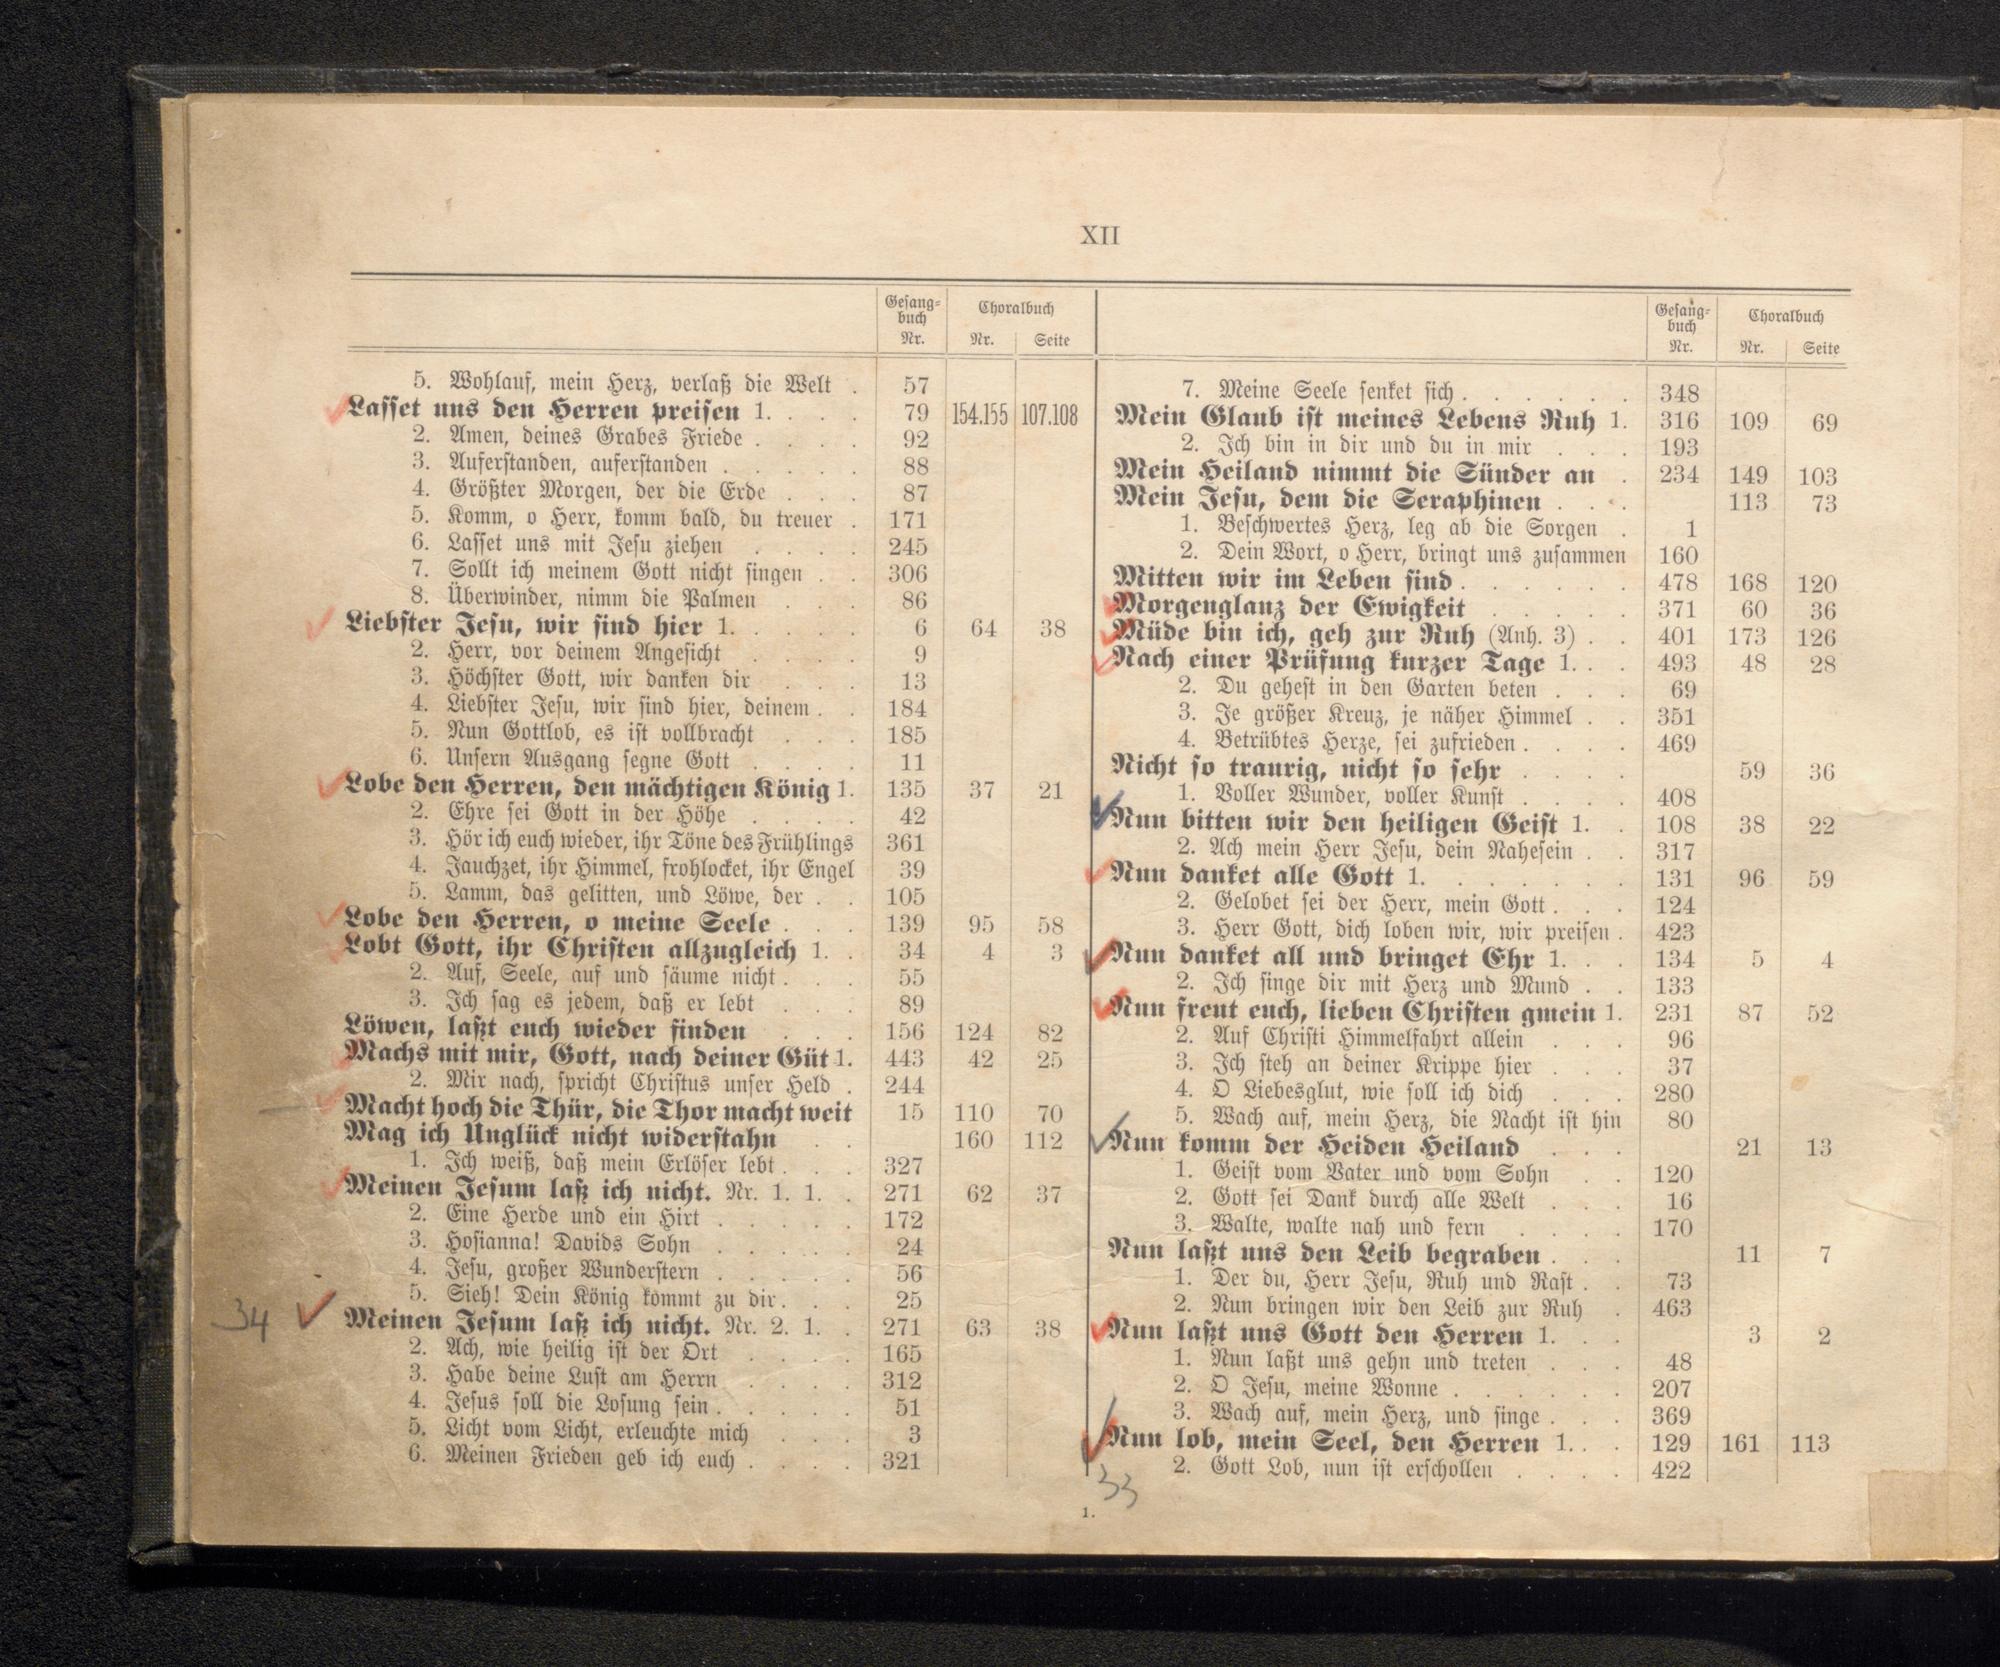 XII
Gesang-
buch
Nr.
Choralbuch
Nr. Seite
5. Wohlauf, mein Herz, verlaß die Welt . 57
Lasset uns den Herren preisen 1. . . . 79 154.155 107.108
2. Amen, deines Grabes Friede . . . . 92
3. Auferstanden, auferstanden . . . . . 88
4. Größter Morgen, der die Erde . . . 87
5. Komm, o Herr, komm bald, du treuer . 171
6. Lasset uns mit Jesu ziehen . . . . 245
7. Sollt ich meinem Gott nicht singen . . 306
8. Überwinder, nimm die Palmen . . . 86
Liebster Jesu, wir sind hier 1. . . . . 6 64 38
2. Herr, vor deinem Angesicht . . . . 9
3. Höchster Gott, wir danken dir . . . 13
4. Liebster Jesu, wir sind hier, deinem . . 184
5. Nun Gottlob, es ist vollbracht . . . 185
6. Unsern Ausgang segne Gott . . . . 11
Lobe den Herren, den mächtigen König 1. 135 37 21
2. Ehre sei Gott in der Höhe . . . . 42
3. Hör ich euch wieder, ihr Töne des Frühlings 361
4. Jauchzet, ihr Himmel, frohlocket, ihr Engel 39
5. Lamm, das gelitten, und Löwe, der . . 105
Lobe den Herren, o meine Seele . . . 139 95 58
Lobt Gott, ihr Christen allzugleich 1. . 34 4 3
2. Auf, Seele, auf und säume nicht . . . 55
3. Ich sag es jedem, daß er lebt . . . 89
Löwen, laßt euch wieder finden . . . 156 124 82
Machs mit mir, Gott, nach deiner Güt 1. 443 42 25
2. Mir nach, spricht Christus unser Held . 244
Macht hoch die Thür, die Thor macht weit 15 110 70
Mag ich Unglück nicht widerstahn . . 160 112
1. Ich weiß, daß mein Erlöser lebt . . . 327
Meinen Jesum laß ich nicht. Nr. 1. 1. . 271 62 37
2. Eine Herde und ein Hirt . . . . . 172
3. Hosianna! Davids Sohn . . . . . 24
4. Jesu, großer Wunderstern . . . . . 56
5. Sieh! Dein König kommt zu dir . . . 25
34
Meinen Jesum laß ich nicht. Nr. 2. 1. . 271 63 38
2. Ach, wie heilig ist der Ort . . . . 165
3. Habe deine Lust am Herrn . . . . 312
4. Jesus soll die Losung sein . . . . . 51
5. Licht vom Licht, erleuchte mich . . . 3
6. Meinen Frieden geb ich euch . . . . 321
Gesang-
buch
Nr.
Choralbuch
Nr. Seite
7. Meine Seele senket sich . . . . . . 348
Mein Glaub ist meines Lebens Ruh 1. 316 109 69
2. Ich bin in dir und du in mir . . . 193
Mein Heiland nimmt die Sünder an . 234 149 103
Mein Jesu, dem die Seraphinen . . . 113 73
1. Beschwertes Herz, leg ab die Sorgen . 1
2. Dein Wort, o Herr, bringt uns zusammen 160
Mitten wir im Leben sind . . . . . . 478 168 120
Morgenglanz der Ewigkeit . . . . . 371 60 36
Müde bin ich, geh zur Ruh (Anh. 3) . . 401 173 126
Nach einer Prüfung kurzer Tage 1. . . 493 48 28
2. Du gehest in den Garten beten . . . 69
3. Je größer Kreuz, je näher Himmel . . 351
4. Betrübtes Herze, sei zufrieden . . . . 469
Nicht so traurig, nicht so sehr . . . . 59 36
1. Voller Wunder, voller Kunst . . . . 408
Nun bitten wir den heiligen Geist 1. . 108 38 22
2. Ach mein Herr Jesu, dein Nahesein . . 317
Nun danket alle Gott 1. . . . . . . 131 96 59
2. Gelobet sei der Herr, mein Gott . . . 124
3. Herr Gott, dich loben wir, wir preisen . 423
Nun danket all und bringet Ehr 1. . . 134 5 4
2. Ich singe dir mit Herz und Mund . . 133
Nun freut euch, lieben Christen gmein 1. 231 87 52
2. Auf Christi Himmelfahrt allein . . . 96
3. Ich steh an deiner Krippe hier . . . 37
4. O Liebesglut, wie soll ich dich . . . 280
5. Wach auf, mein Herz, die Nacht ist hin 80
Nun komm der Heiden Heiland . . . 21 13
1. Geist vom Vater und vom Sohn . . 120
2. Gott sei Dank durch alle Welt . . . 16
3. Walte, walte nah und fern . . . . 170
Nun laßt uns den Leib begraben . . . 11 7
1. Der du, Herr Jesu, Ruh und Rast . . 73
2. Nun bringen wir den Leib zur Ruh . 463
Nun laßt uns Gott den Herren 1. . . 3 2
1. Nun laßt uns gehn und treten . . . 48
2. O Jesu, meine Wonne . . . . . . 207
3. Wach auf, mein Herz, und singe . . . 369
Nun lob, mein Seel, den Herren 1. . . 129 161 113
2. Gott Lob, nun ist erschollen . . . . 422
33
1.